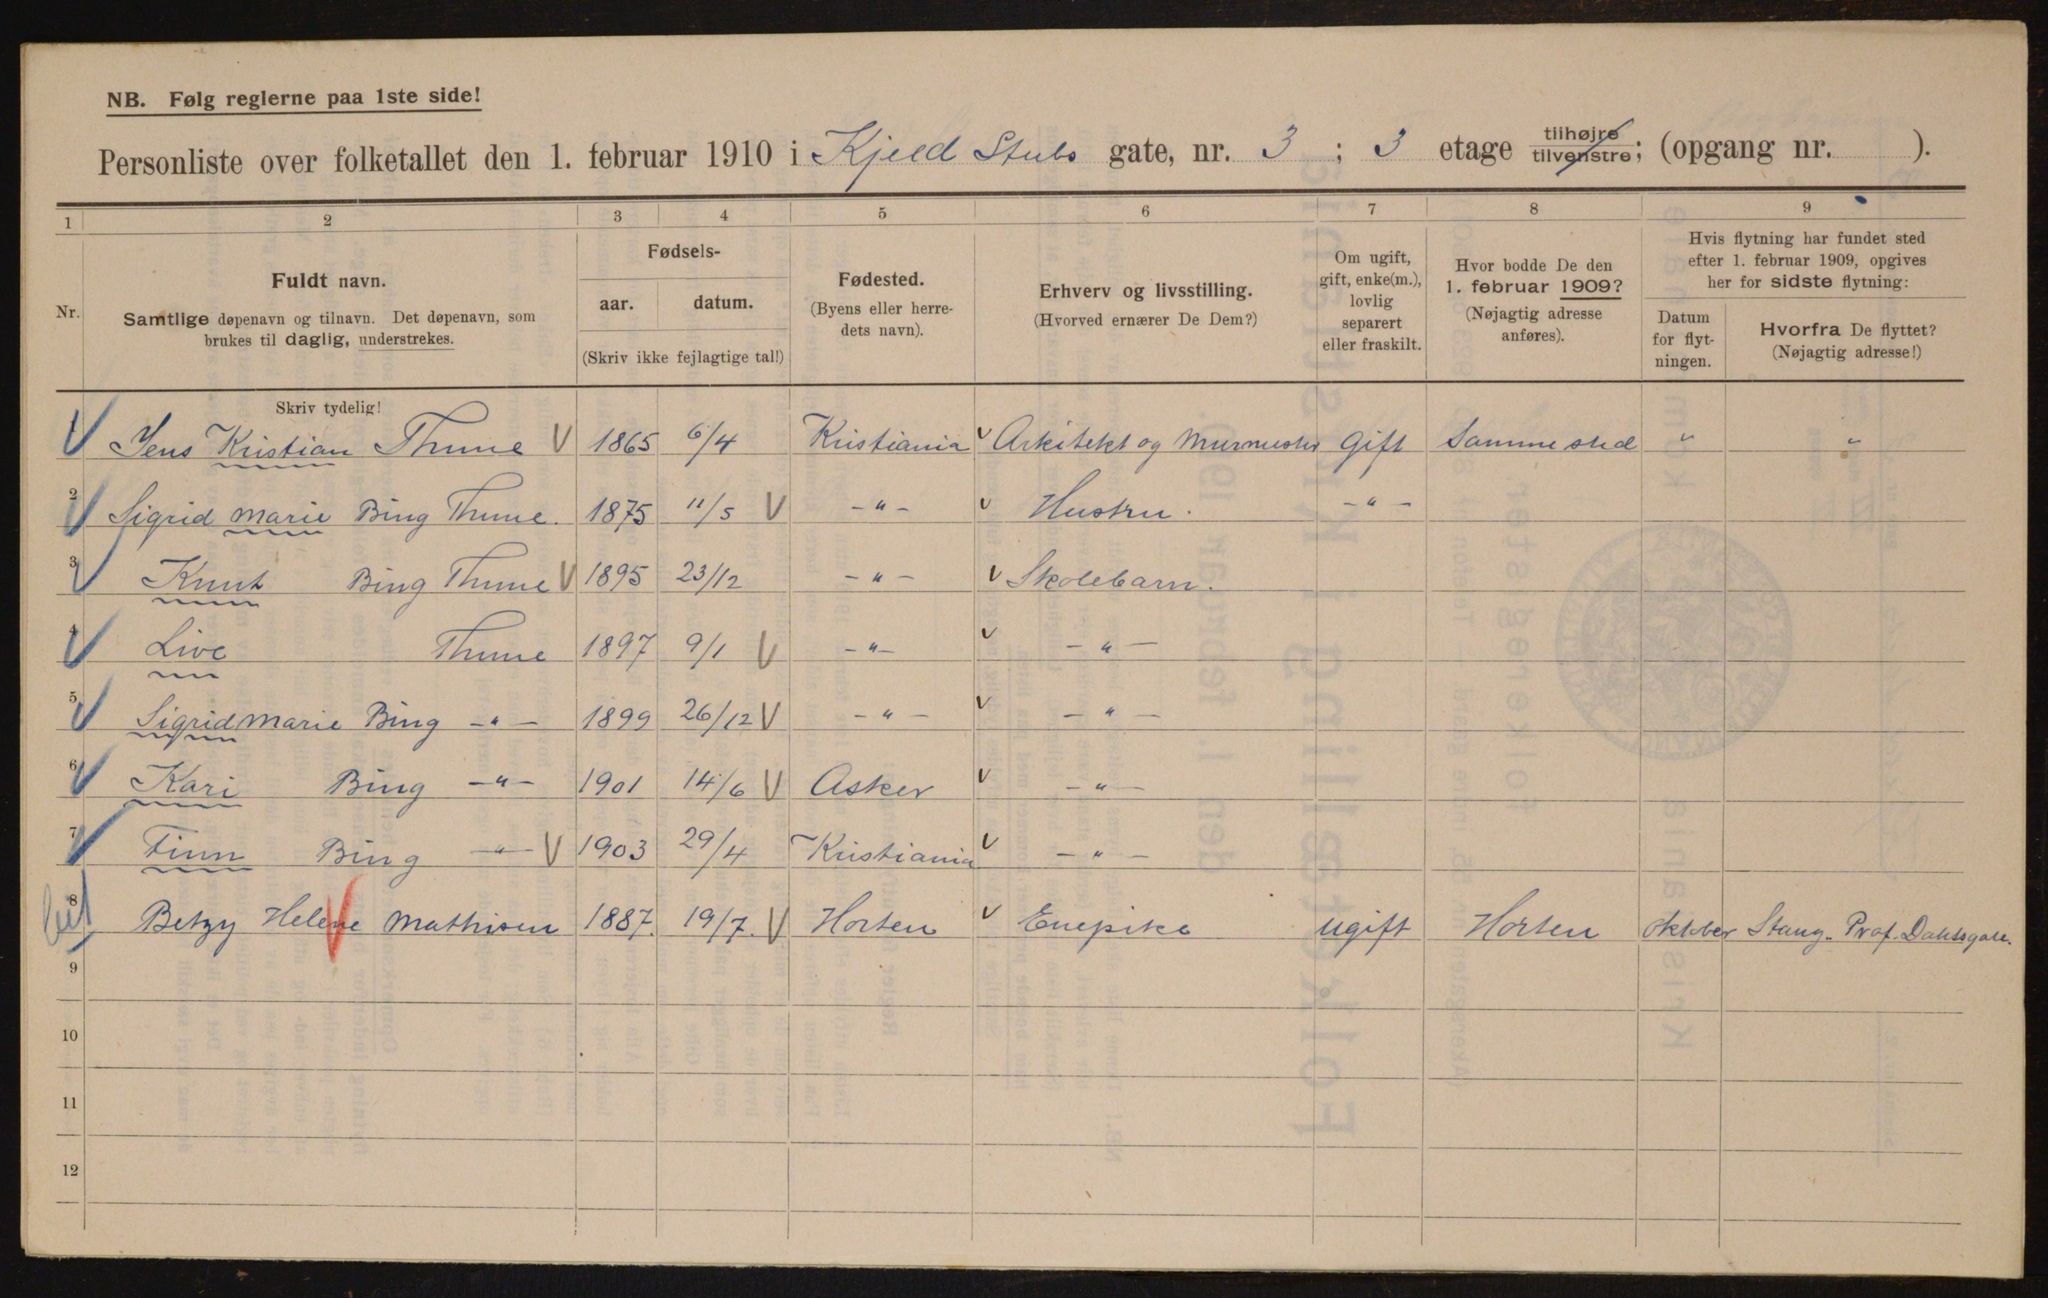 NB. Følg reglerne paa 1ste side!
Personliste over folketallet den 1. februar 1910 i Kjeld Stubs gate, nr. 3 ; 3 etage tilhøjre/tilvenstre; (opgang nr. ).
1 2 3 4 5 6 7 8 9
Nr.
Fuldt navn.
Samtlige døpenavn og tilnavn. Det døpenavn, som
brukes til daglig, understrekes.
Fødsels-
aar. datum.
(Skriv ikke fejlagtige tal!)
Fødested.
(Byens eller herre-
dets navn).
Erhverv og livsstilling.
(Hvorved ernærer De Dem?)
Om ugift,
gift, enke(m.),
lovlig
separert
eller fraskilt.
Hvor bodde De den
1. februar 1909?
(Nøjagtig adresse
anføres).
Hvis flytning har fundet sted
efter 1. februar 1909, opgives
her for sidste flytning:
Datum
for flyt-
ningen.
Hvorfra De flyttet?
(Nøjagtig adresse!)
Skriv tydelig!
Jens Kristian Thune 1865 6/4 Kristiania Arkitekt og Murmester Gift Samme sted " "
2 Sigrid Marie Bing Thune. 1875 11/5 -"- Hustru. -"-
3 Knut Bing Thune 1895 23/12 -"- Skolebarn.
4 Live Thune 1897 9/1 -"- -"-
5 Sigrid Marie Bing -"- 1899 26/12 -"- -"-
6 Kari Bing -"- 1901 14/6 Asker -"-
7 Finn Bing -"- 1903 29/4 Kristiania -"-
8 Betzy Helene Mathisen 1887. 19/7. Horten Enepike ugift Horten Oktober Stang. Prof. Dahlsgate.
9
10
11
12